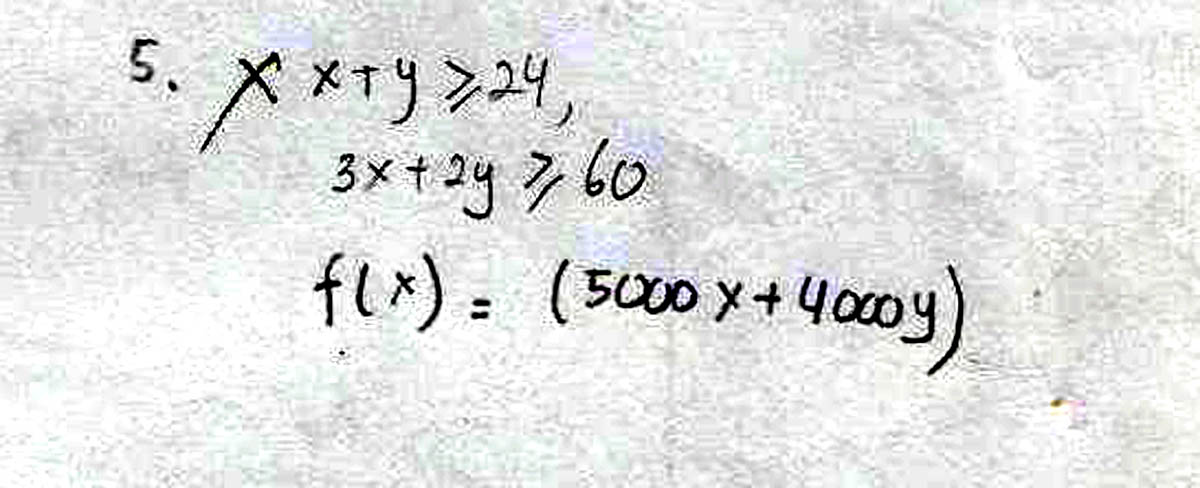 5. x x+y ≥ 24,
3x + 2y ≥ 60
f(x) = (5000 x + 4000y)